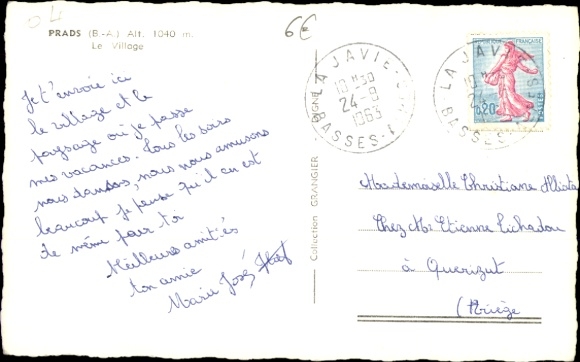 04
6€
PRADS (B.-A.) Alt. 1040 m.
Le Village
Je t'envoie ici
le village et le
paysage où je passe
mes vacances. Tous les soirs
nous dansons, nous nous amusons
beaucoup je pense qu'il en est
de même pour toi
Meilleures amitiés
ton amie
Marie José
Collection GRANGIER
LA JAVIE
10H30
24-8
1963
BASSES-A
REPUBLIQUE FRANÇAISE
0,20
LA JAVIE
10H
24
BASSES
Mademoiselle Christiane
Chez Mr Etienne
à Querigut
(Ariège